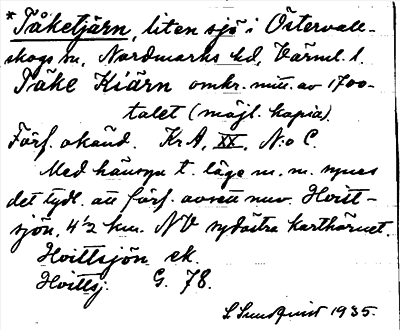 * Tåketjärn, liten sjö i Östervall-
skogs sn, Nordmarks hd, Värml. l.
Tåke Kiärn omkr. mitt. av 1700-
talet (möjl. kopia).
Förf. okänd. KrA, XX, N:o C.
Med hänsyn t. läge m. m. synes
det tydl. att förf. avsett nuv. Hvitt-
sjön, 4½ km. NV sydöstra karthörnet.
Hvittsjön ek.
Hvittsj. G. 78.
S Sundqvist 1935.